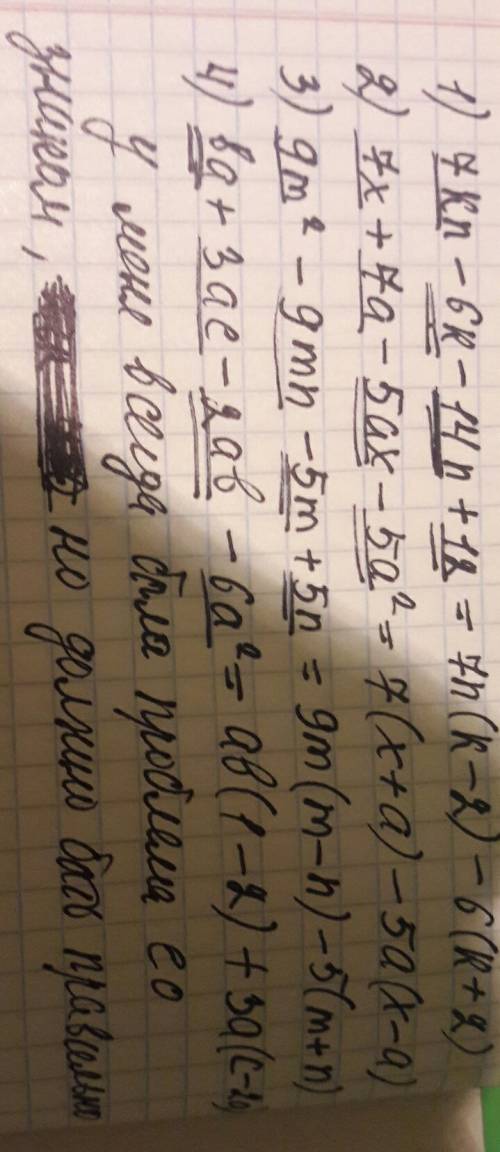 1) 7kn - 6k - 14n + 12 = 7n(k-2) - 6(k+2)
2) 7x + 7a - 5ax - 5a² = 7(x+a) - 5a(x-a)
3) 9m² - 9mn - 5m + 5n = 9m(m-n) - 5(m+n)
4) ва + 3ас - 2ав - 6а² = ав(1-2) + 3а(с-2а)
У меня всегда была проблема со
знаком, но должно быть правильно